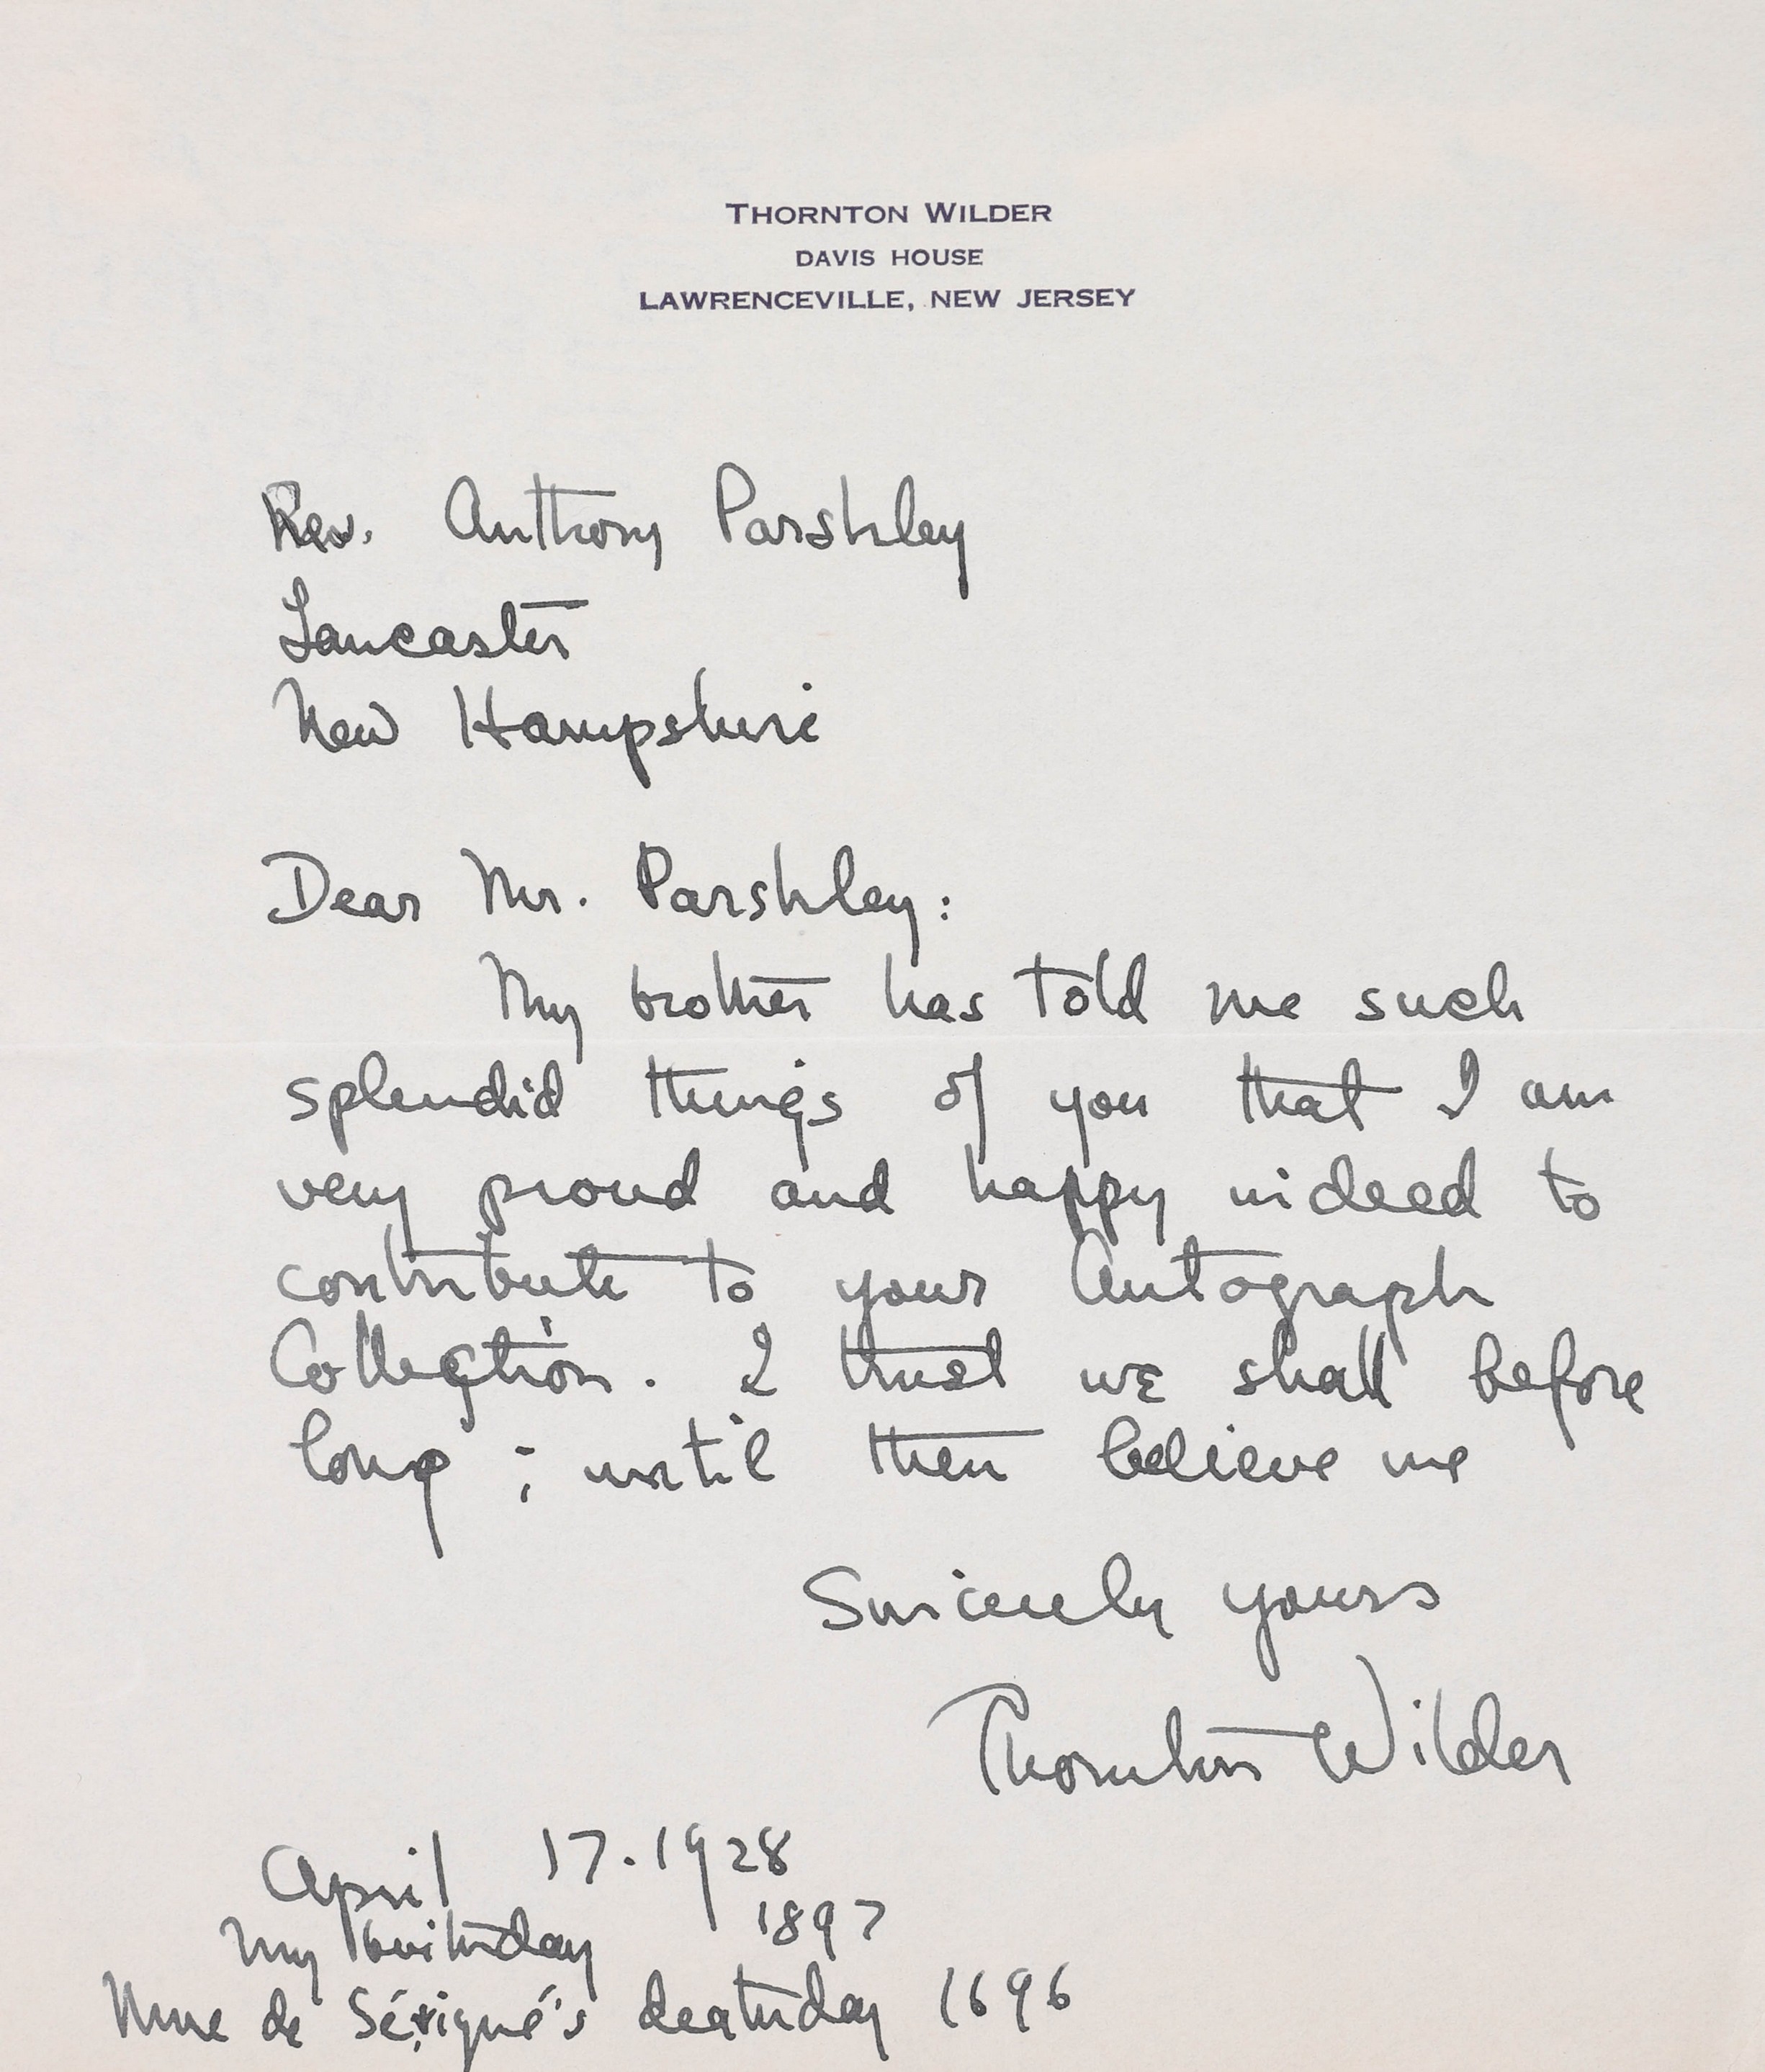 THORNTON WILDER
DAVIS HOUSE
LAWRENCEVILLE, NEW JERSEY
Rev. Anthony Parshley
Lancaster
New Hampshire
Dear Mr. Parshley:
My brother has told me such
splendid things of you that I am
very proud and happy indeed to
contribute to your Autograph
Collection. I trust we shall before
long ; until then believe me
Sincerely yours
Thornton Wilder
April 17. 1928
My birthday 1897
Mme de Sévigné's deathday 1696